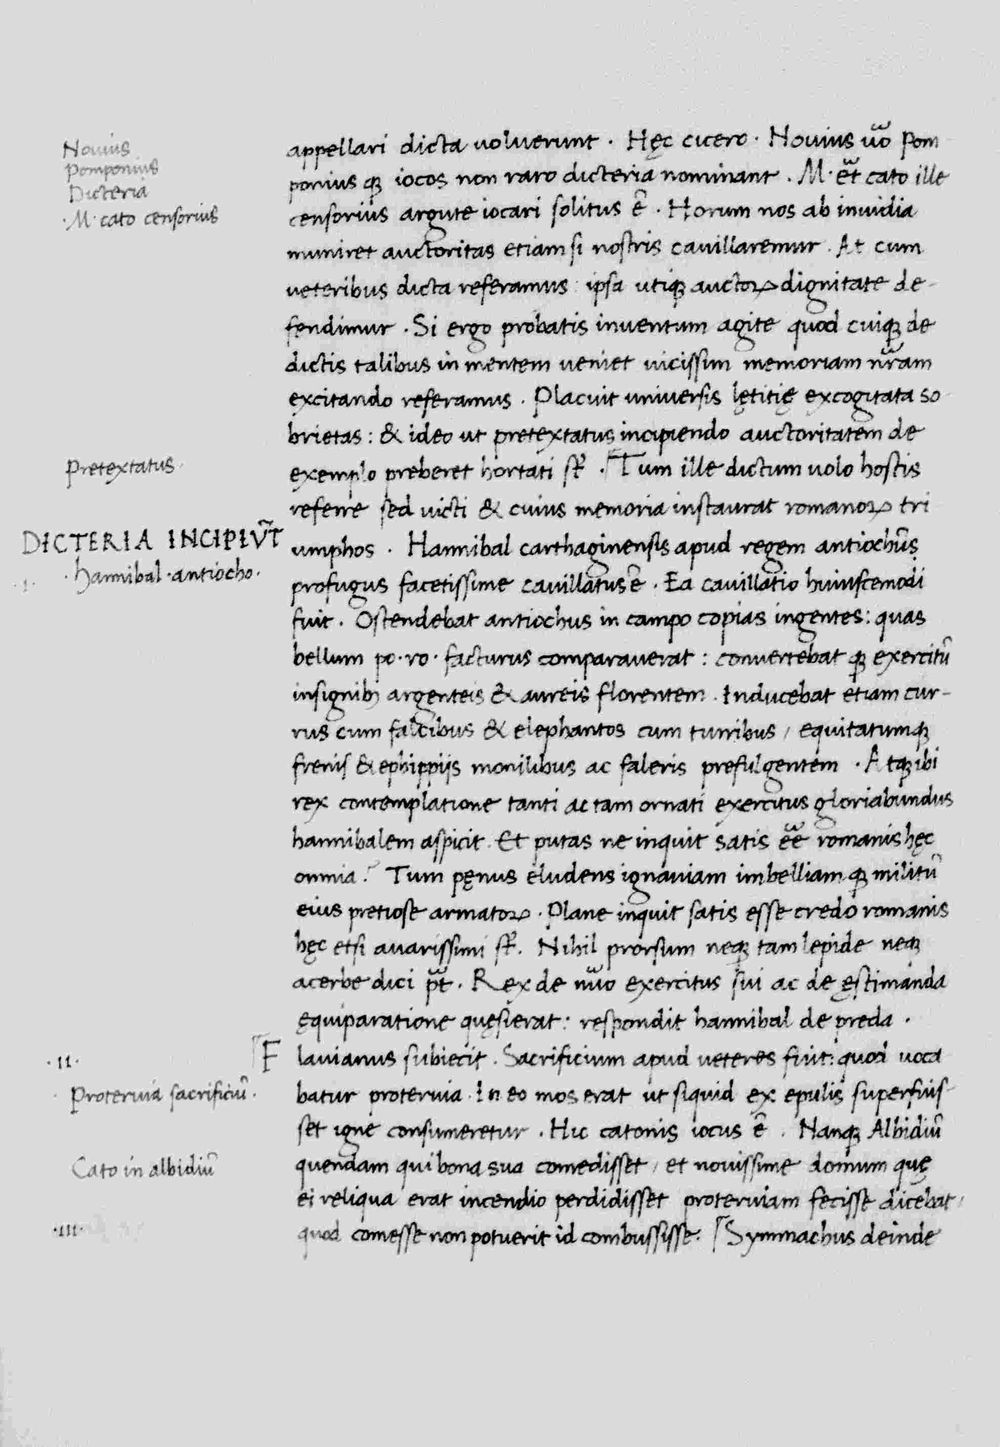 Novius
Pomponius
Dicteria
·M· cato censorius
Pretextatus·
DICTERIA INCIPIV̄T
·I· ·hannibal·antiocho·
·II·
Protervia sacrificiū·
Cato in albidiū
·III·
appellari dicta voluerunt · Hęc cicero · Novius ṽo Pom
ponius qꝫ iocos non raro dicteria nominant · M· et̃ cato ille
censorius argute iocari solitus ē · Horum nos ab invidia
muniret auctoritas etiam si nostris cavillaremur · At cum
veteribus dicta referamus : ipsa utiqꝫ auctoꝝ dignitate de-
fendimur · Si ergo probatis inventum agite quod cuiqꝫ de
dictis talibus in mentem veniet vicissim memoriam nr̃am
excitando referamus · Placuit universis lętitię excogitata so
brietas : & ideo ut pretextatus incipiendo auctoritatem de
exemplo preberet hortati st̄ · Tum ille dictum volo hostis
referre sed victi & cuius memoria instaurat romanoꝝ tri
umphos · Hannibal carthaginensis apud regem antiochūs
profugus facetissime cavillatus ē · Ea cavillatio huiuscemodi
fuit · Ostendebat antiochus in campo copias ingentes : quas
bellum po·ro· facturus comparaverat : convertebat qꝫ exercitū
insignibꝫ argenteis & aureis florentem · Inducebat etiam cur-
rus cum falcibus & elephantos cum turribus / equitatumqꝫ
frenis & ephippijs monilibus ac faleris prefulgentem · Atqꝫ ibi
rex contemplatione tanti ac tam ornati exercitus gloriabundus
hannibalem aspicit · Et putas ne inquit satis eē̃ romanis hęc
omnia? Tum pęnus eludens ignaviam imbelliam qꝫ militū
eius pretiose armatoꝝ · Plane inquit satis esse credo romanis
hęc etsi avarissimi st̄. Nihil prorsum neqꝫ tam lepide neqꝫ
acerbe dici pt̃ · Rex de nũo exercitus sui ac de ęstimanda
ęquiparatione quęsierat : respondit hannibal de preda ·
Flavianus subiecit · Sacrificium apud veteres fuit : quod voca
batur protervia · In eo mos erat ut siquid ex epulis superfuis-
set igne consumeretur · Hic catonis iocus ē · Nanqꝫ Albidiū
quendam qui bona sua comedisset / et novissime domum quę
ei reliqua erat incendio perdidisset proterviam fecisse dicebat /
quod comesse non potuerit id combussisse · Symmachus deinde